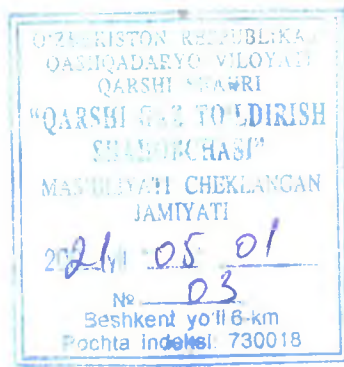 O'ZBEKISTON RESPUBLIKASI
QASHQADARYO VILOYATI
QARSHI SHAHRI
"QARSHI GAZ TO'LDIRISH
SHAHOBCHASI"
MAS'ULIYATI CHEKLANGAN
JAMIYATI
2021 yil 05 01
№ 03
Beshkent yo'li 6-km
Pochta indeksi: 730018